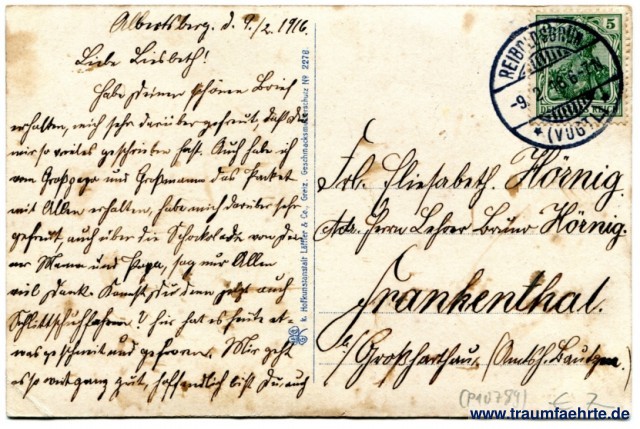 Albertsberg. d. 9./2. 1916.
Liebe Liesbeth!
Habe Deinen schönen Brief
erhalten, mich sehr darüber gefreut, daß Du
mir so vieles geschrieben hast. Auch habe ich
vom Großpapa und Großmama das Packet
mit Allen erhalten, habe mich darüber sehr
gefreut, auch über die Schokolade von Dei-
ner Mama und Papa, sag nur Allen
viel Dank. Kannst Du denn jetzt auch
Schlittschuhfahren? hier hat es heute et-
was geschneit und gefroren. Mir geht
es so weit ganz gut, hoffendlich bist Du auch
k. Hofkunstanstalt Löffler & Co., Greiz. Geschmacksmusterschutz No 2276.
5
DEUTSCHES REICH
REIBOLDSGRÜN
-9. 2. 16. 6-7 N.
* (VOGTL.) *
Frl. Elisabeth. Hörnig.
Adr. Herrn Lehrer Bruno Hörnig.
Frankenthal.
b/ Großharthau, (Amtsh. Bautzen.
(P10789)
www.traumfaehrte.de